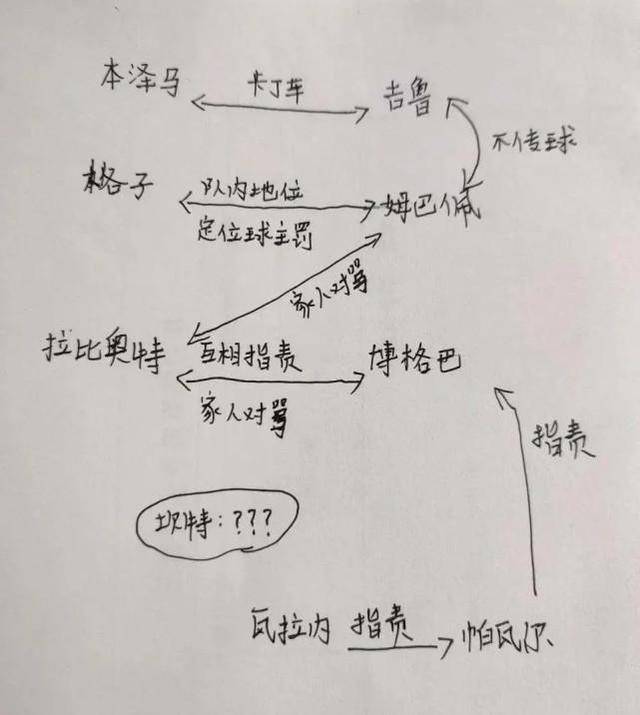 本泽马 卡丁车 吉鲁
不传球
格子 队内地位 姆巴佩
定位球主罚
家人对骂
拉比奥特 互相指责 博格巴
家人对骂
指责
坎特:???
瓦拉内 指责 帕瓦尔